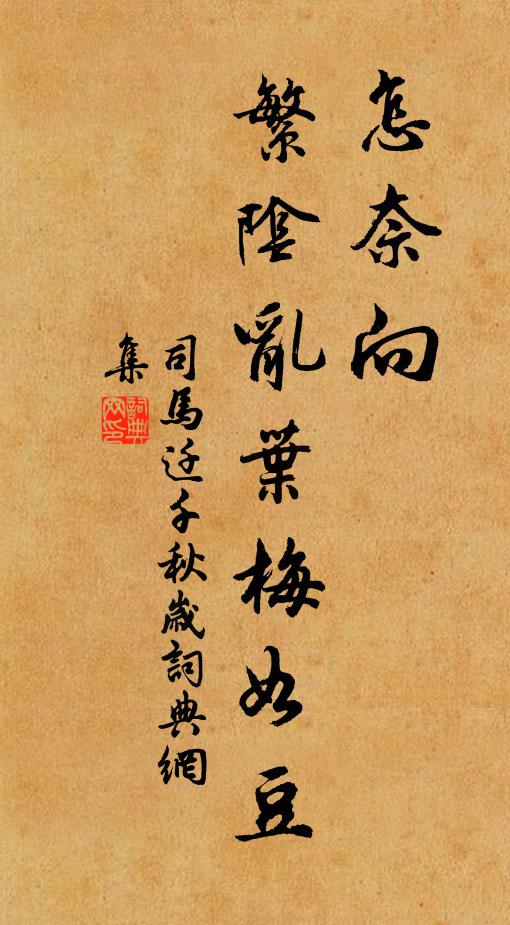 怎奈向
繁陰亂葉梅如豆
司馬迁千秋歲詞典網
集
詞典網印